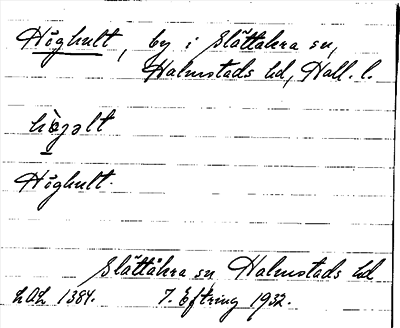 Höghult, by i Slättåkra sn,
Halmstads hd, Hall. l.
hö̀gəlt
Höghult.
Slättåkra sn Halmstads hd
LAL 1384. 7. Eftring 1932.